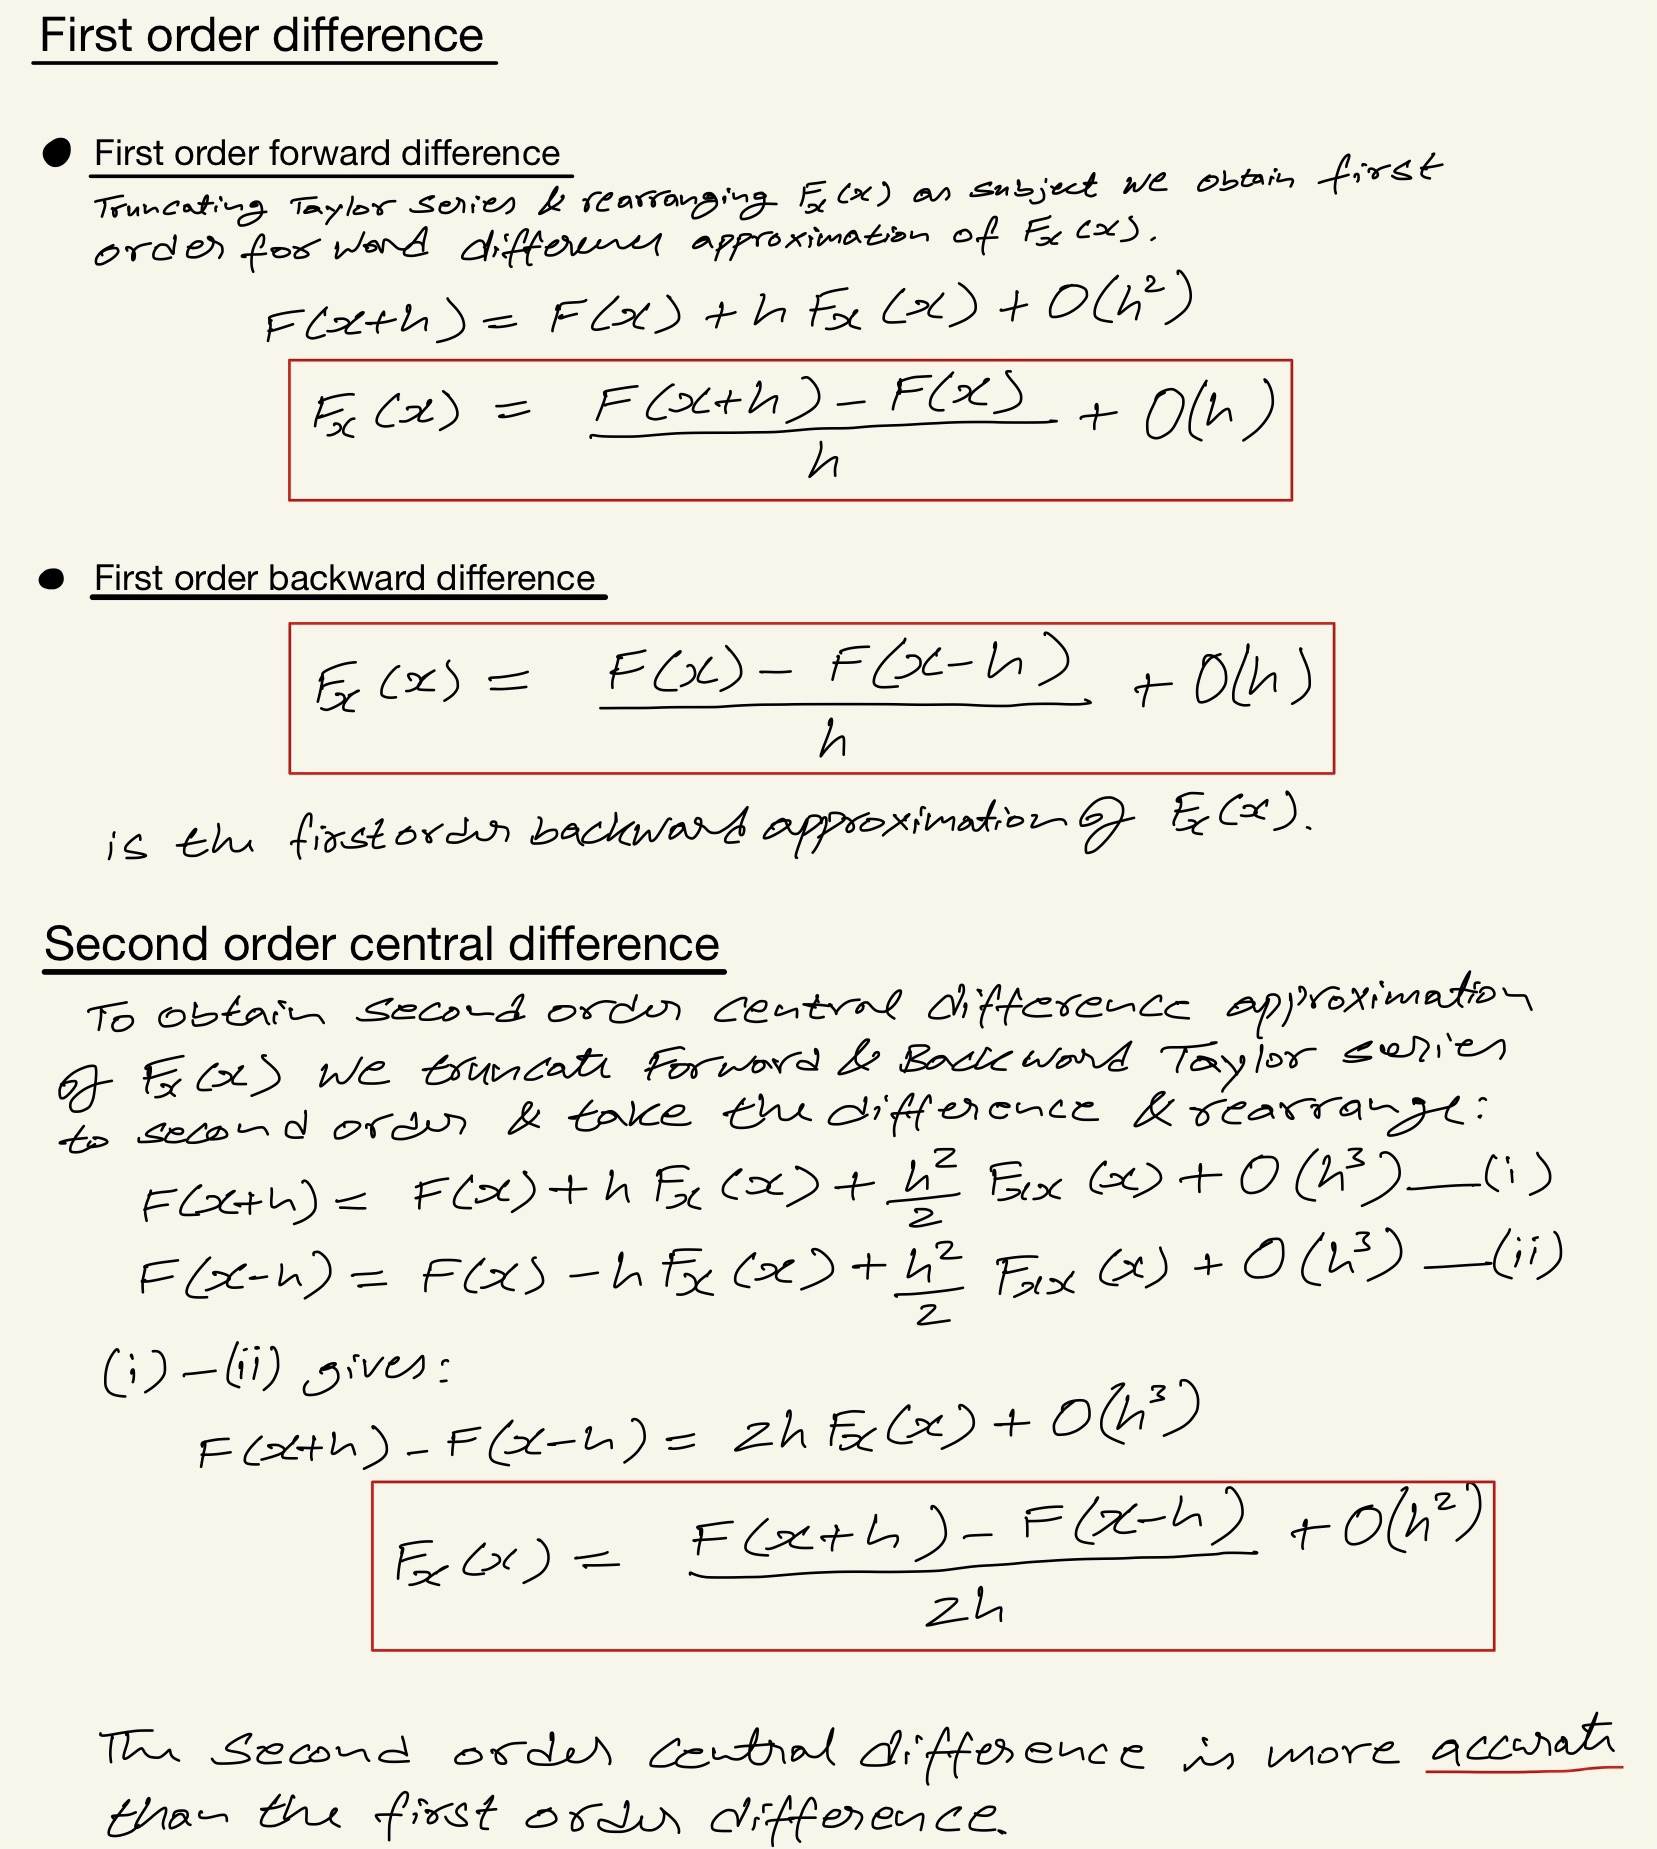 First order difference
● First order forward difference
Truncating Taylor series & rearranging Fₓ(x) as subject we obtain first
order forward difference approximation of Fₓ(x).
F(x+h) = F(x) + h Fₓ(x) + O(h²)
Fₓ(x) = (F(x+h) - F(x)) / h + O(h)
● First order backward difference
Fₓ(x) = (F(x) - F(x-h)) / h + O(h)
is the first order backward approximation of Fₓ(x).
Second order central difference
To obtain second order central difference approximation
of Fₓ(x) we truncate Forward & Backward Taylor series
to second order & take the difference & rearrange:
F(x+h) = F(x) + h Fₓ(x) + h²/2 Fₓₓ(x) + O(h³) —(i)
F(x-h) = F(x) - h Fₓ(x) + h²/2 Fₓₓ(x) + O(h³) —(ii)
(i) - (ii) gives:
F(x+h) - F(x-h) = 2h Fₓ(x) + O(h³)
Fₓ(x) = (F(x+h) - F(x-h)) / 2h + O(h²)
The second order central difference is more accurate
than the first order difference.